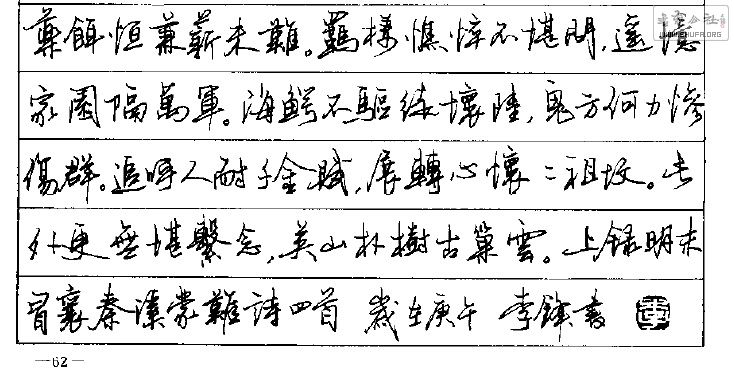 藥餌恒兼薪米難。鶉樣憔悴不堪問，遙憶
家園隔萬軍。海鰐不驅緣壞陸，鬼方何力慘
傷群。追呼人耐千金賦，展轉心懷二祖墳。此
外更無堪繫念，英山朴樹古巢雲。上錄明末
冒襄秦溪蒙難詩四首 歲在庚午 李鋒書
—62—